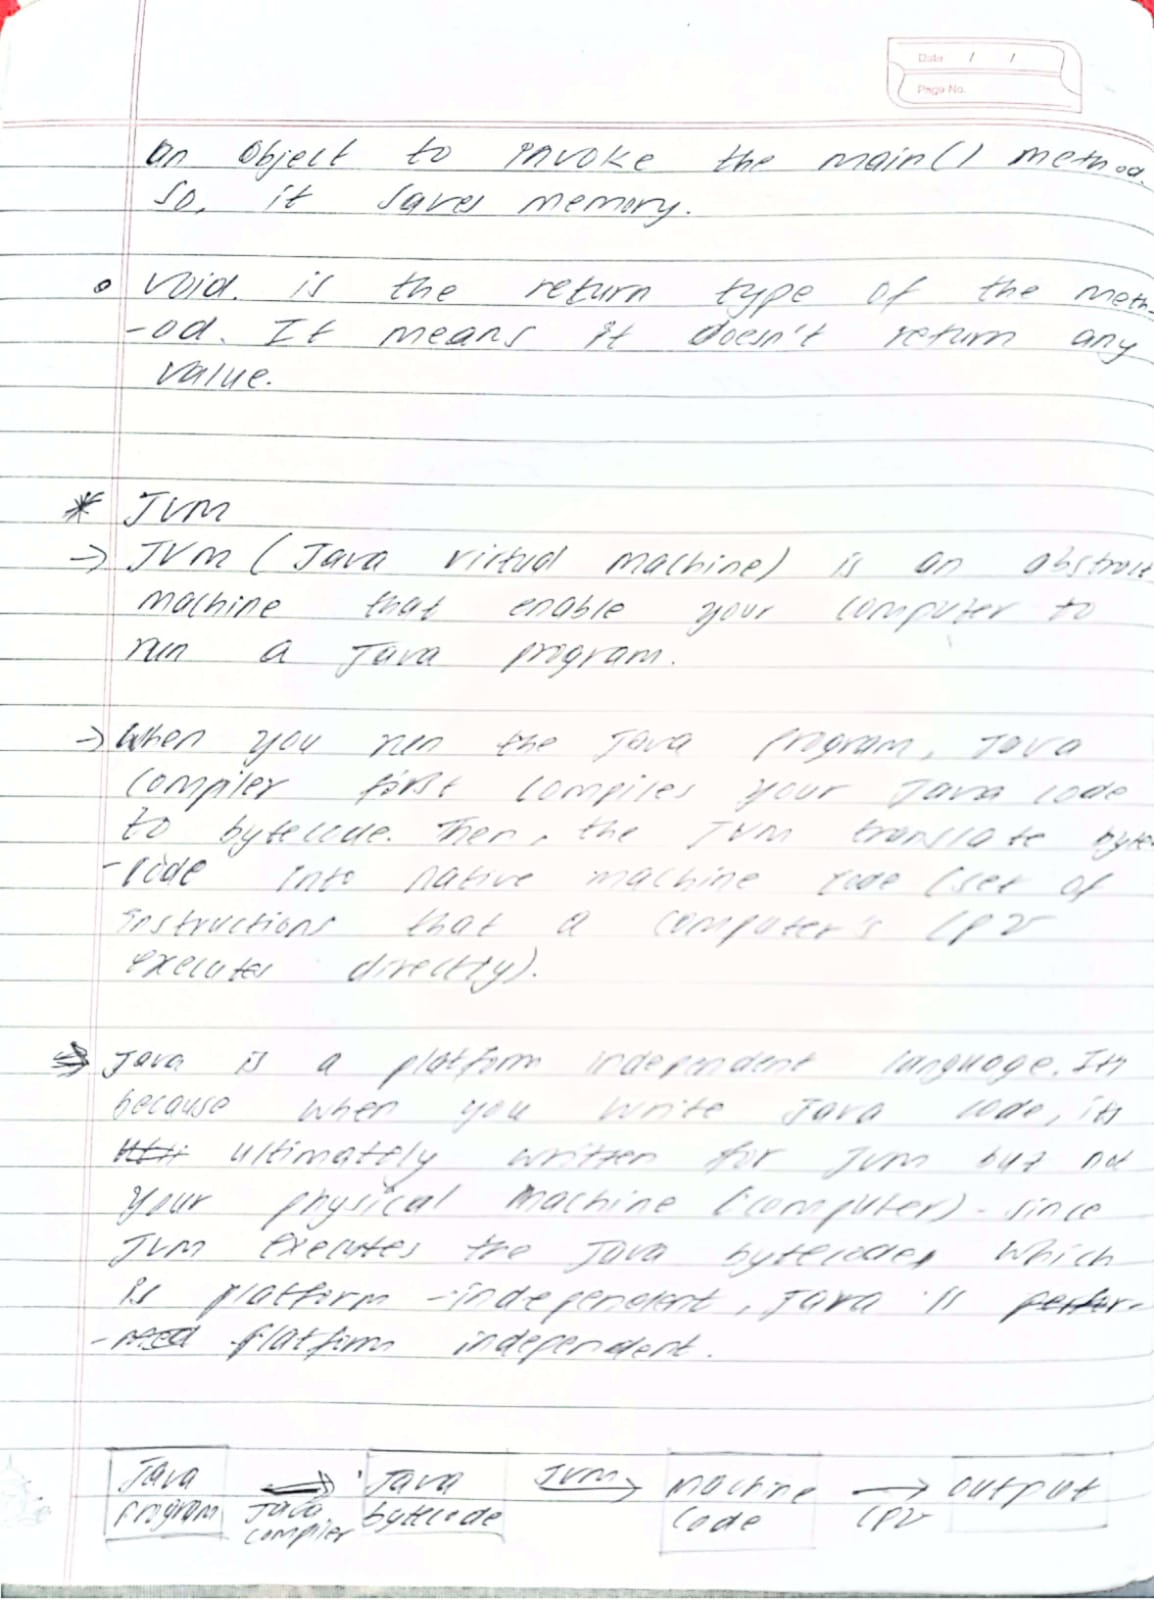 Date / /
Page No.
an object to invoke the main() method.
so, it saves memory.
• void. is the return type of the meth-
-od. It means it doesn't return any
value.
* JVM
→ JVM (Java virtual machine) is an abstract
machine that enable your computer to
run a Java program.
→ When you run the Java program, Java
compiler first compiles your Java code
to bytecode. Then, the JVM translate byte-
-code into native machine code (set of
instructions that a computer's CPU
executes directly).
⇒ Java is a platform independent language. Its
because when you write Java code, its
ultimately written for JVM but not
your physical machine (computer). since
JVM executes the Java bytecode, which
is platform-independent, Java is
platform independent.
Java ⇒ Java JVM → Machine → output
program Java compiler bytecode code CPU